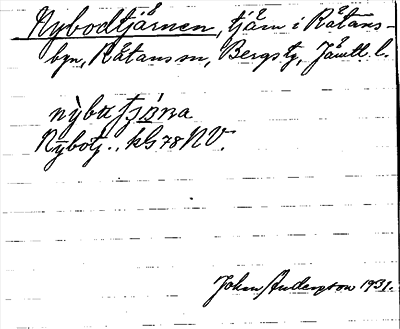 Nybodtjärnen, tjärn i Råtans-
byn, Råtans sn, Bergs tg, Jämtl. l.
nỳbu tjǿna
Nybotj., kG 78 NV.
John Andersson 1931.